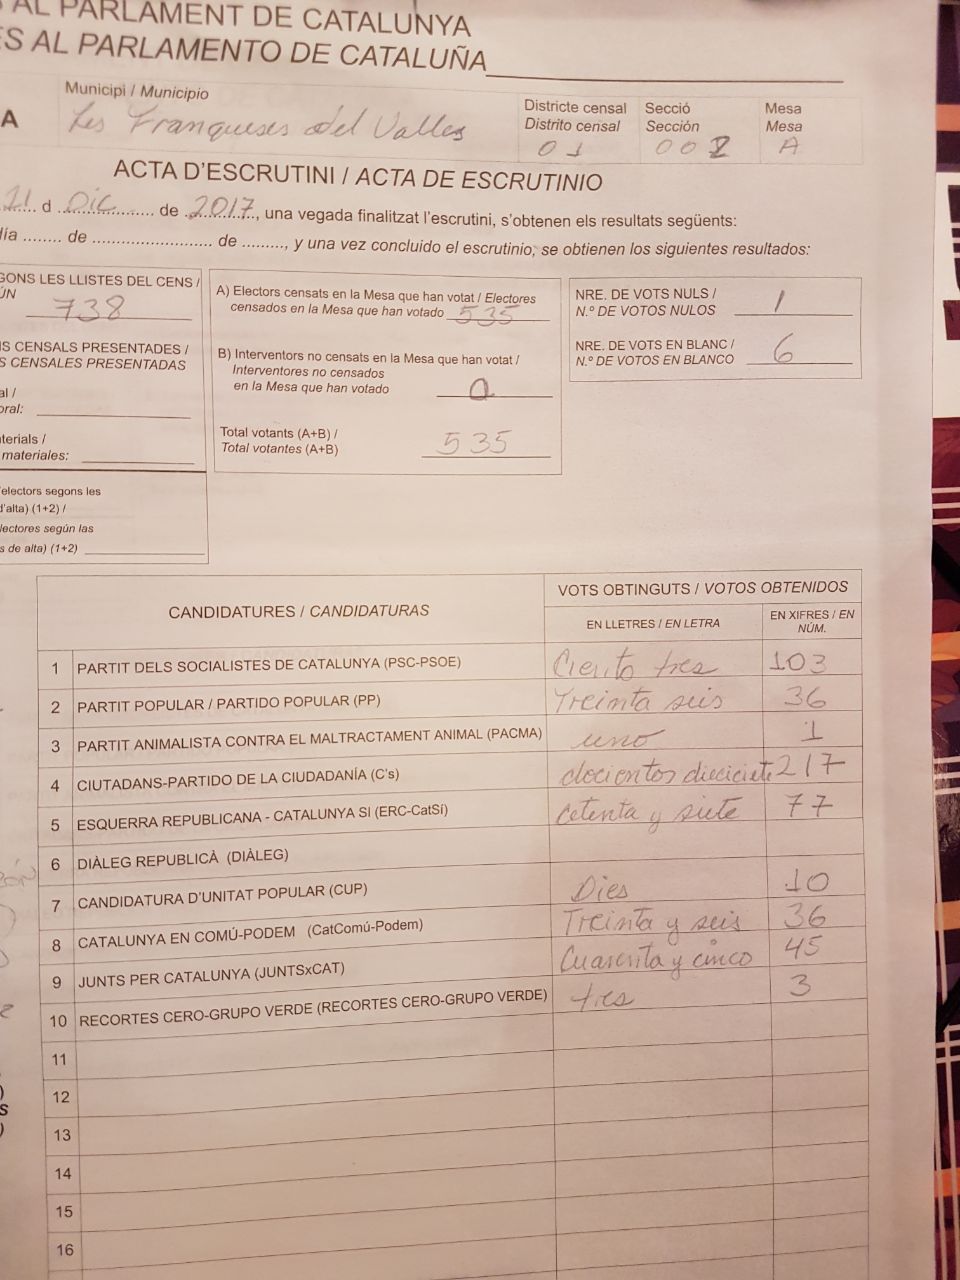 AL PARLAMENT DE CATALUNYA
ES AL PARLAMENTO DE CATALUÑA
A
Municipi / Municipio
Les Franqueses del Valles
Districte censal
Distrito censal
01
Secció
Sección
002
Mesa
Mesa
A
ACTA D'ESCRUTINI / ACTA DE ESCRUTINIO
21 d Dic de 2017, una vegada finalitzat l'escrutini, s'obtenen els resultats següents:
día ........ de .......................... de ........., y una vez concluido el escrutinio, se obtienen los siguientes resultados:
GONS LES LLISTES DEL CENS /
ÚN
738
S CENSALS PRESENTADES /
S CENSALES PRESENTADAS
al /
oral:
terials /
materiales:
'electors segons les
d'alta) (1+2) /
lectores según las
s de alta) (1+2)
A) Electors censats en la Mesa que han votat / Electores
censados en la Mesa que han votado 535
B) Interventors no censats en la Mesa que han votat /
Interventores no censados
en la Mesa que han votado 0
Total votants (A+B) /
Total votantes (A+B) 535
NRE. DE VOTS NULS /
N.º DE VOTOS NULOS 1
NRE. DE VOTS EN BLANC /
N.º DE VOTOS EN BLANCO 6
CANDIDATURES / CANDIDATURAS
VOTS OBTINGUTS / VOTOS OBTENIDOS
EN LLETRES / EN LETRA
EN XIFRES / EN
NÚM.
1 PARTIT DELS SOCIALISTES DE CATALUNYA (PSC-PSOE) Ciento tres 103
2 PARTIT POPULAR / PARTIDO POPULAR (PP) Treinta seis 36
3 PARTIT ANIMALISTA CONTRA EL MALTRACTAMENT ANIMAL (PACMA) uno 1
4 CIUTADANS-PARTIDO DE LA CIUDADANÍA (C's) docientos dieciciete 217
5 ESQUERRA REPUBLICANA - CATALUNYA SI (ERC-CatSí) Cetenta y siete 77
6 DIÀLEG REPUBLICÀ (DIÀLEG)
7 CANDIDATURA D'UNITAT POPULAR (CUP) Dies 10
8 CATALUNYA EN COMÚ-PODEM (CatComú-Podem) Treinta y seis 36
9 JUNTS PER CATALUNYA (JUNTSxCAT) Cuarenta y cinco 45
10 RECORTES CERO-GRUPO VERDE (RECORTES CERO-GRUPO VERDE) tres 3
11
12
13
14
15
16